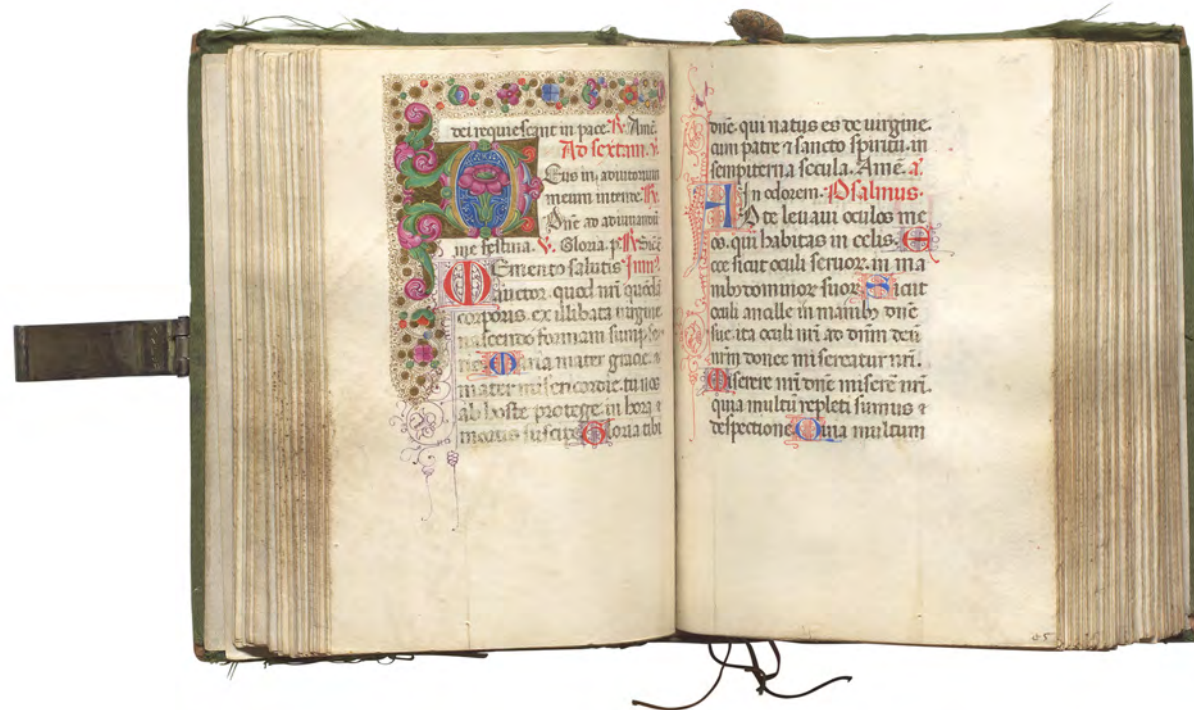 dei requiescant in pace. R. Amē.
Ad sextam. v.
Deus in adiutorium
meum intende. R.
Dñe ad adiuuandū
me festina. V. Gloria. p. R. Sicū
MEmento salutis Imn9.
auctor. quod nr̄i quōdā
corporis. ex illibata uirgine
nascendo formam sumpse
ris. Maria mater gracie. a
mater misericordie. tu nos
ab hoste protege. in hora ⁊
mortis suscipe. Gloria tibi
dñe. qui natus es de uirgine.
cum patre ⁊ sancto spiritu. in
sempiterna secula. Amē. a.
In odorem. Psalmus.
AD te leuaui oculos me
os. qui habitas in celis. E
cce sicut oculi seruoꝝ. in ma
nibꝫ dominoꝝ suoꝝ. Sicut
oculi ancille in manibꝫ dñe
sue. ita oculi nr̄i ad dñm deū
nr̄m donec misereatur nr̄i.
Miserere nr̄i dñe miserē nr̄i.
quia multū repleti sumus ⁊
despectione. Quia multum
85